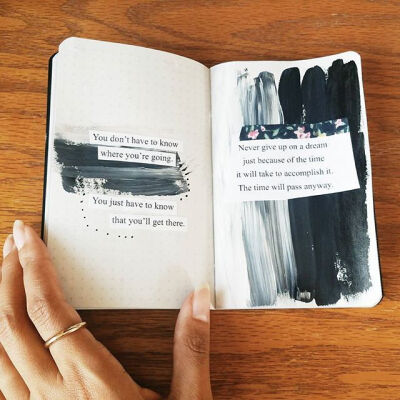 You don't have to know
where you're going.
You just have to know
that you'll get there.
Never give up on a dream
just because of the time
it will take to accomplish it.
The time will pass anyway.